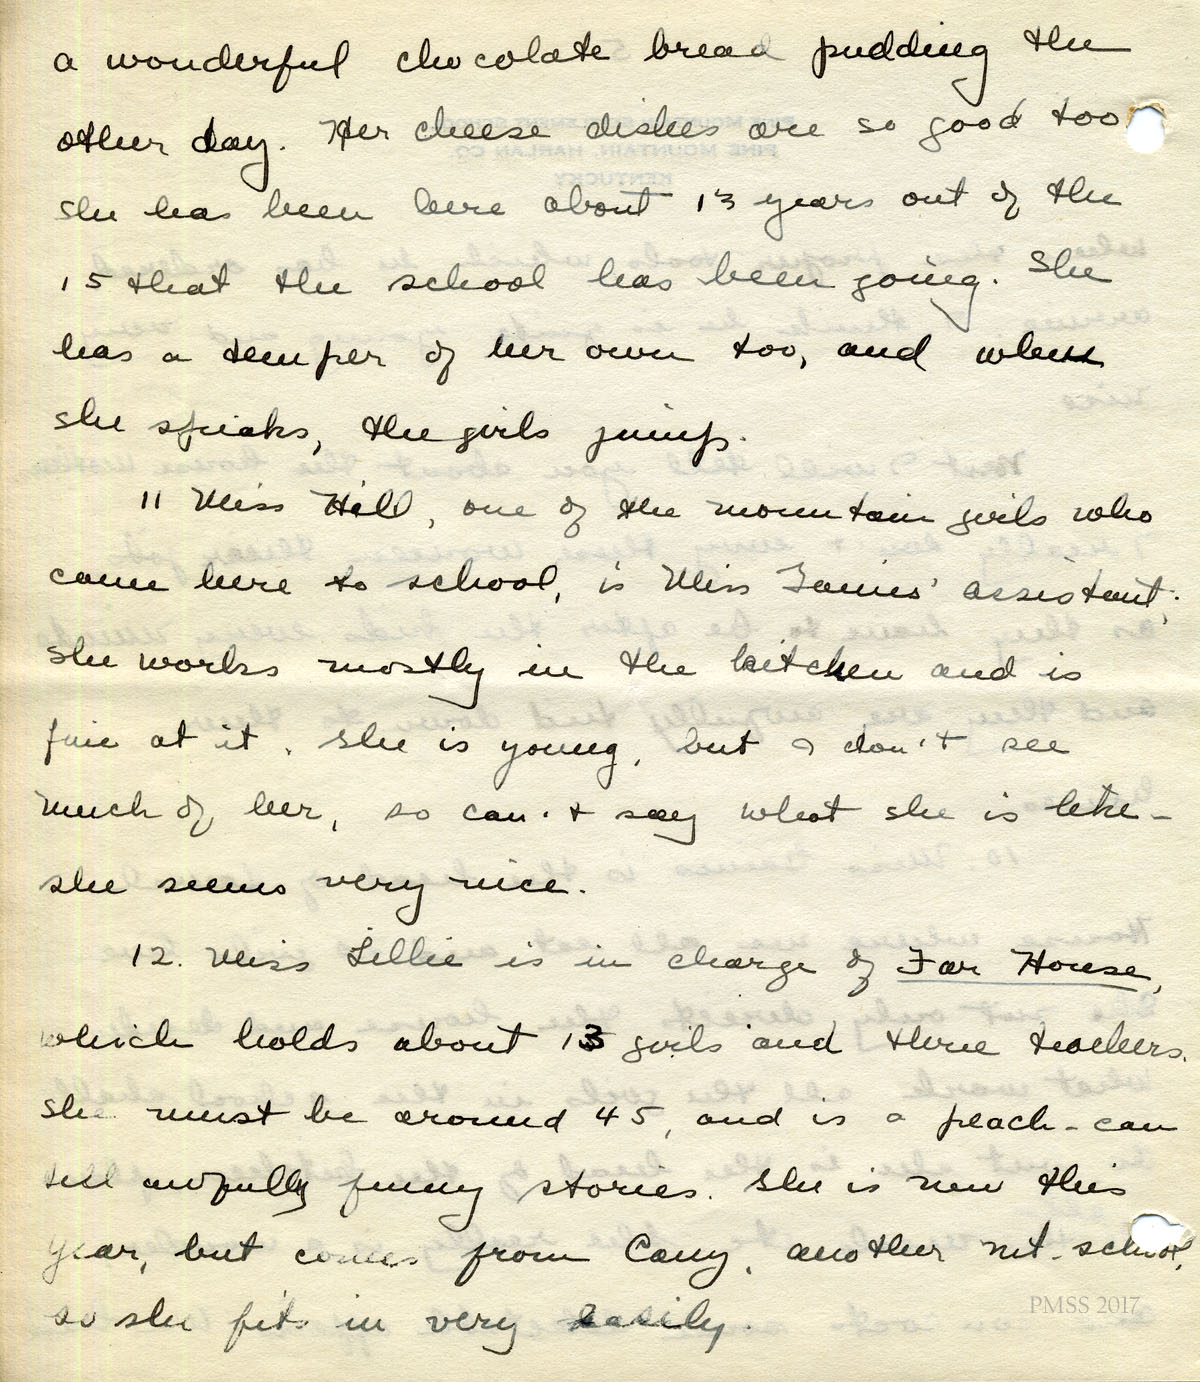 a wonderful chocolate bread pudding the
other day. Her cheese dishes are so good too
she has been here about 13 years out of the
15 that the school has been going. She
has a temper of her own too, and when
she speaks, the girls jump.
11 Miss Hill, one of the mountain girls who
came here to school, is Miss Gaines' assistant;
she works mostly in the kitchen and is
fine at it. She is young, but I don't see
much of her, so can't say what she is like -
she seems very nice.
12. Miss Lillie is in charge of Far House,
which holds about 13 girls and three teachers.
She must be around 45, and is a peach - can
tell awfully funny stories. She is new this
year, but comes from Cany, another mt. school,
so she fits in very easily.
PINE MOUNTAIN SETTLEMENT SCHOOL
PINE MOUNTAIN, HARLAN CO.
KENTUCKY
PMSS 2017